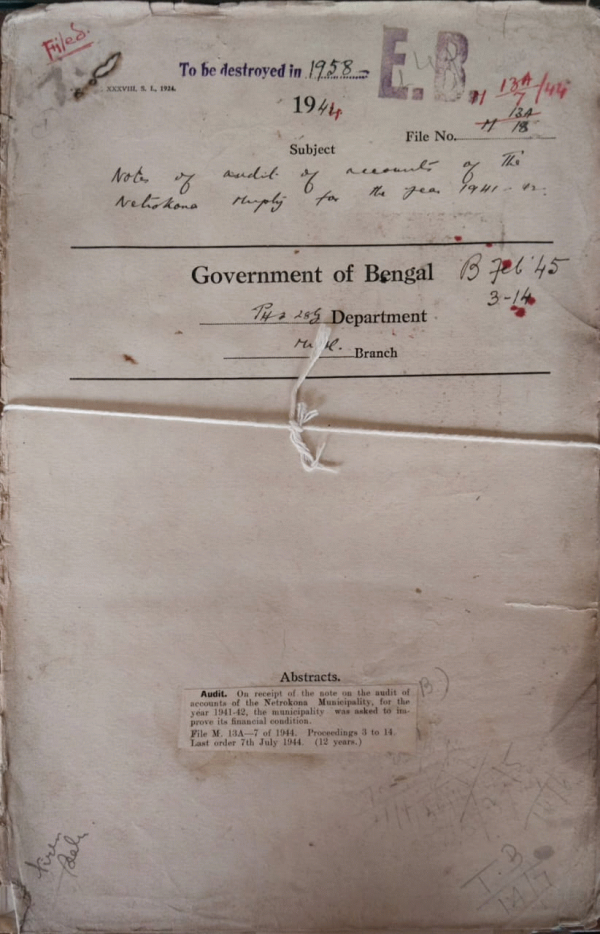 Filed.
To be destroyed in 1958
E.B.
XXXVIII. S. I., 1924.
1944
M 13A/7/44
File No. M 13A/18
Subject
Notes of audit of accounts of the
Netrokona for the year 1941-42.
Government of Bengal
B Feb '45
3-14
Department
Branch
Abstracts.
Audit. On receipt of the note on the audit of
accounts of the Netrokona Municipality, for the
year 1941-42, the municipality was asked to im-
prove its financial condition.
File M. 13A—7 of 1944. Proceedings 3 to 14.
Last order 7th July 1944. (12 years.)
B)
T.B